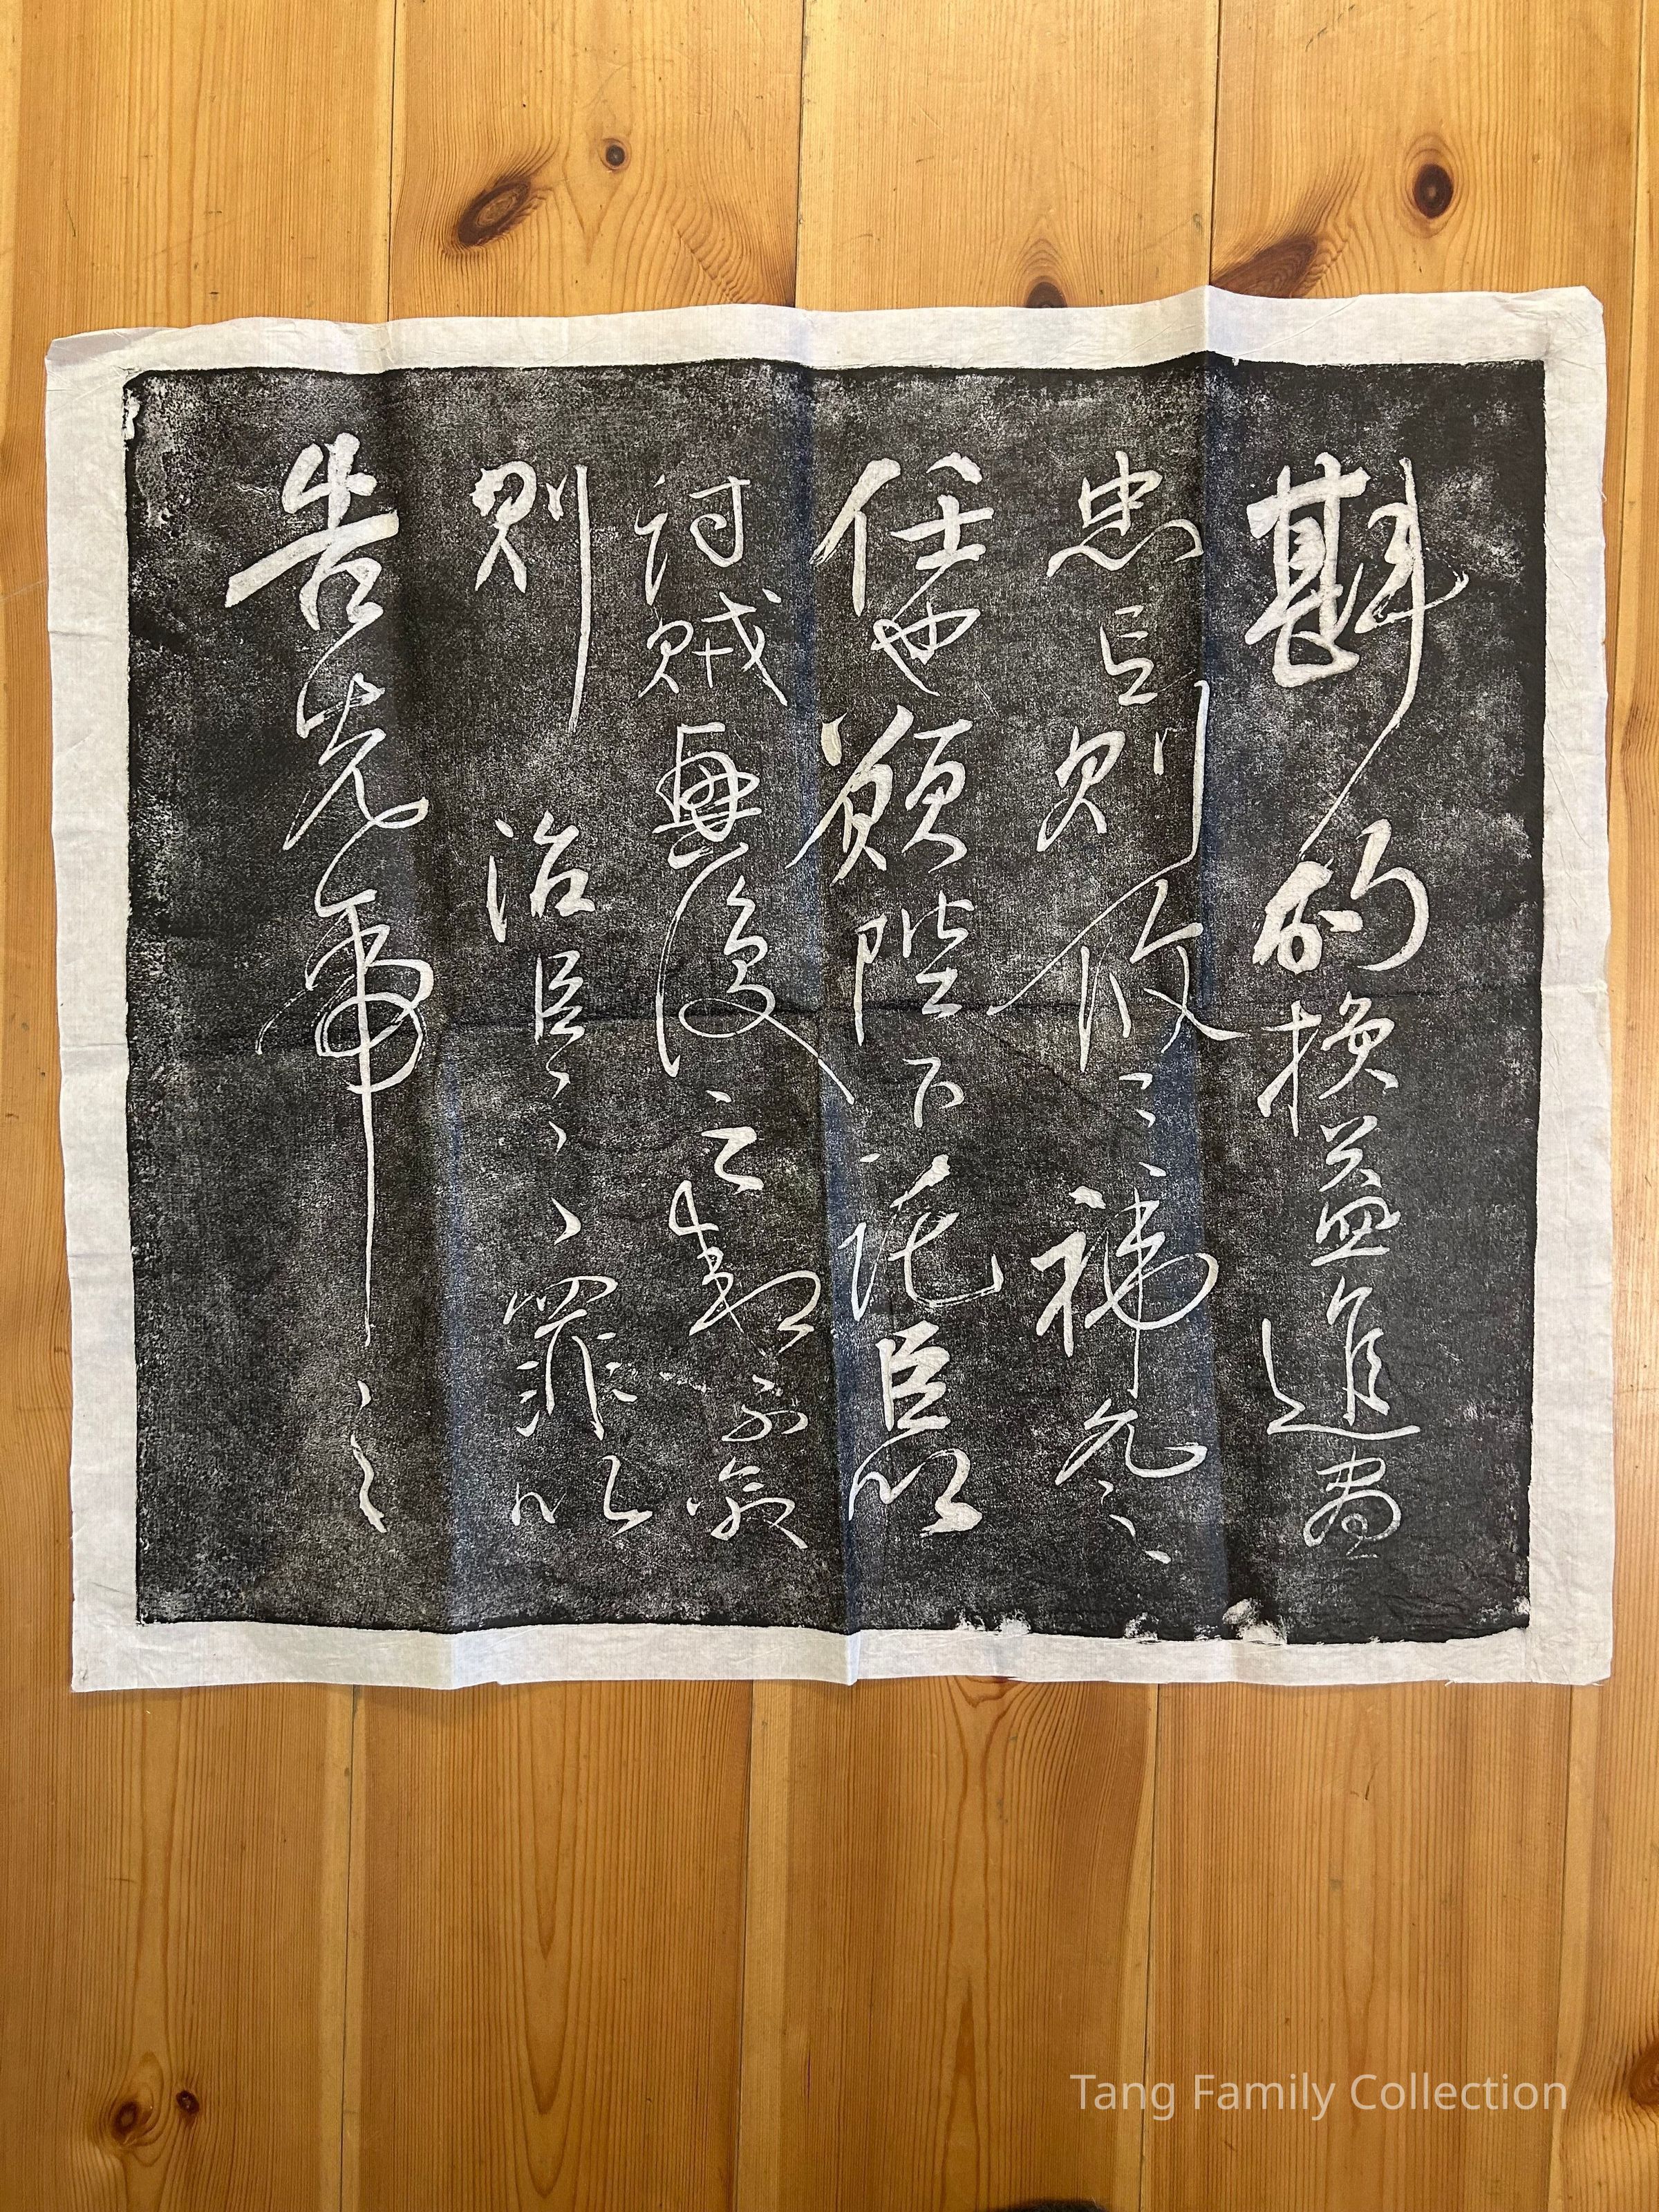 斟酌損益進盡
忠言則攸之禕允之
任也願陛下託臣以
討賊興復之效不效
則治臣之罪以
告先帝之
Tang Family Collection